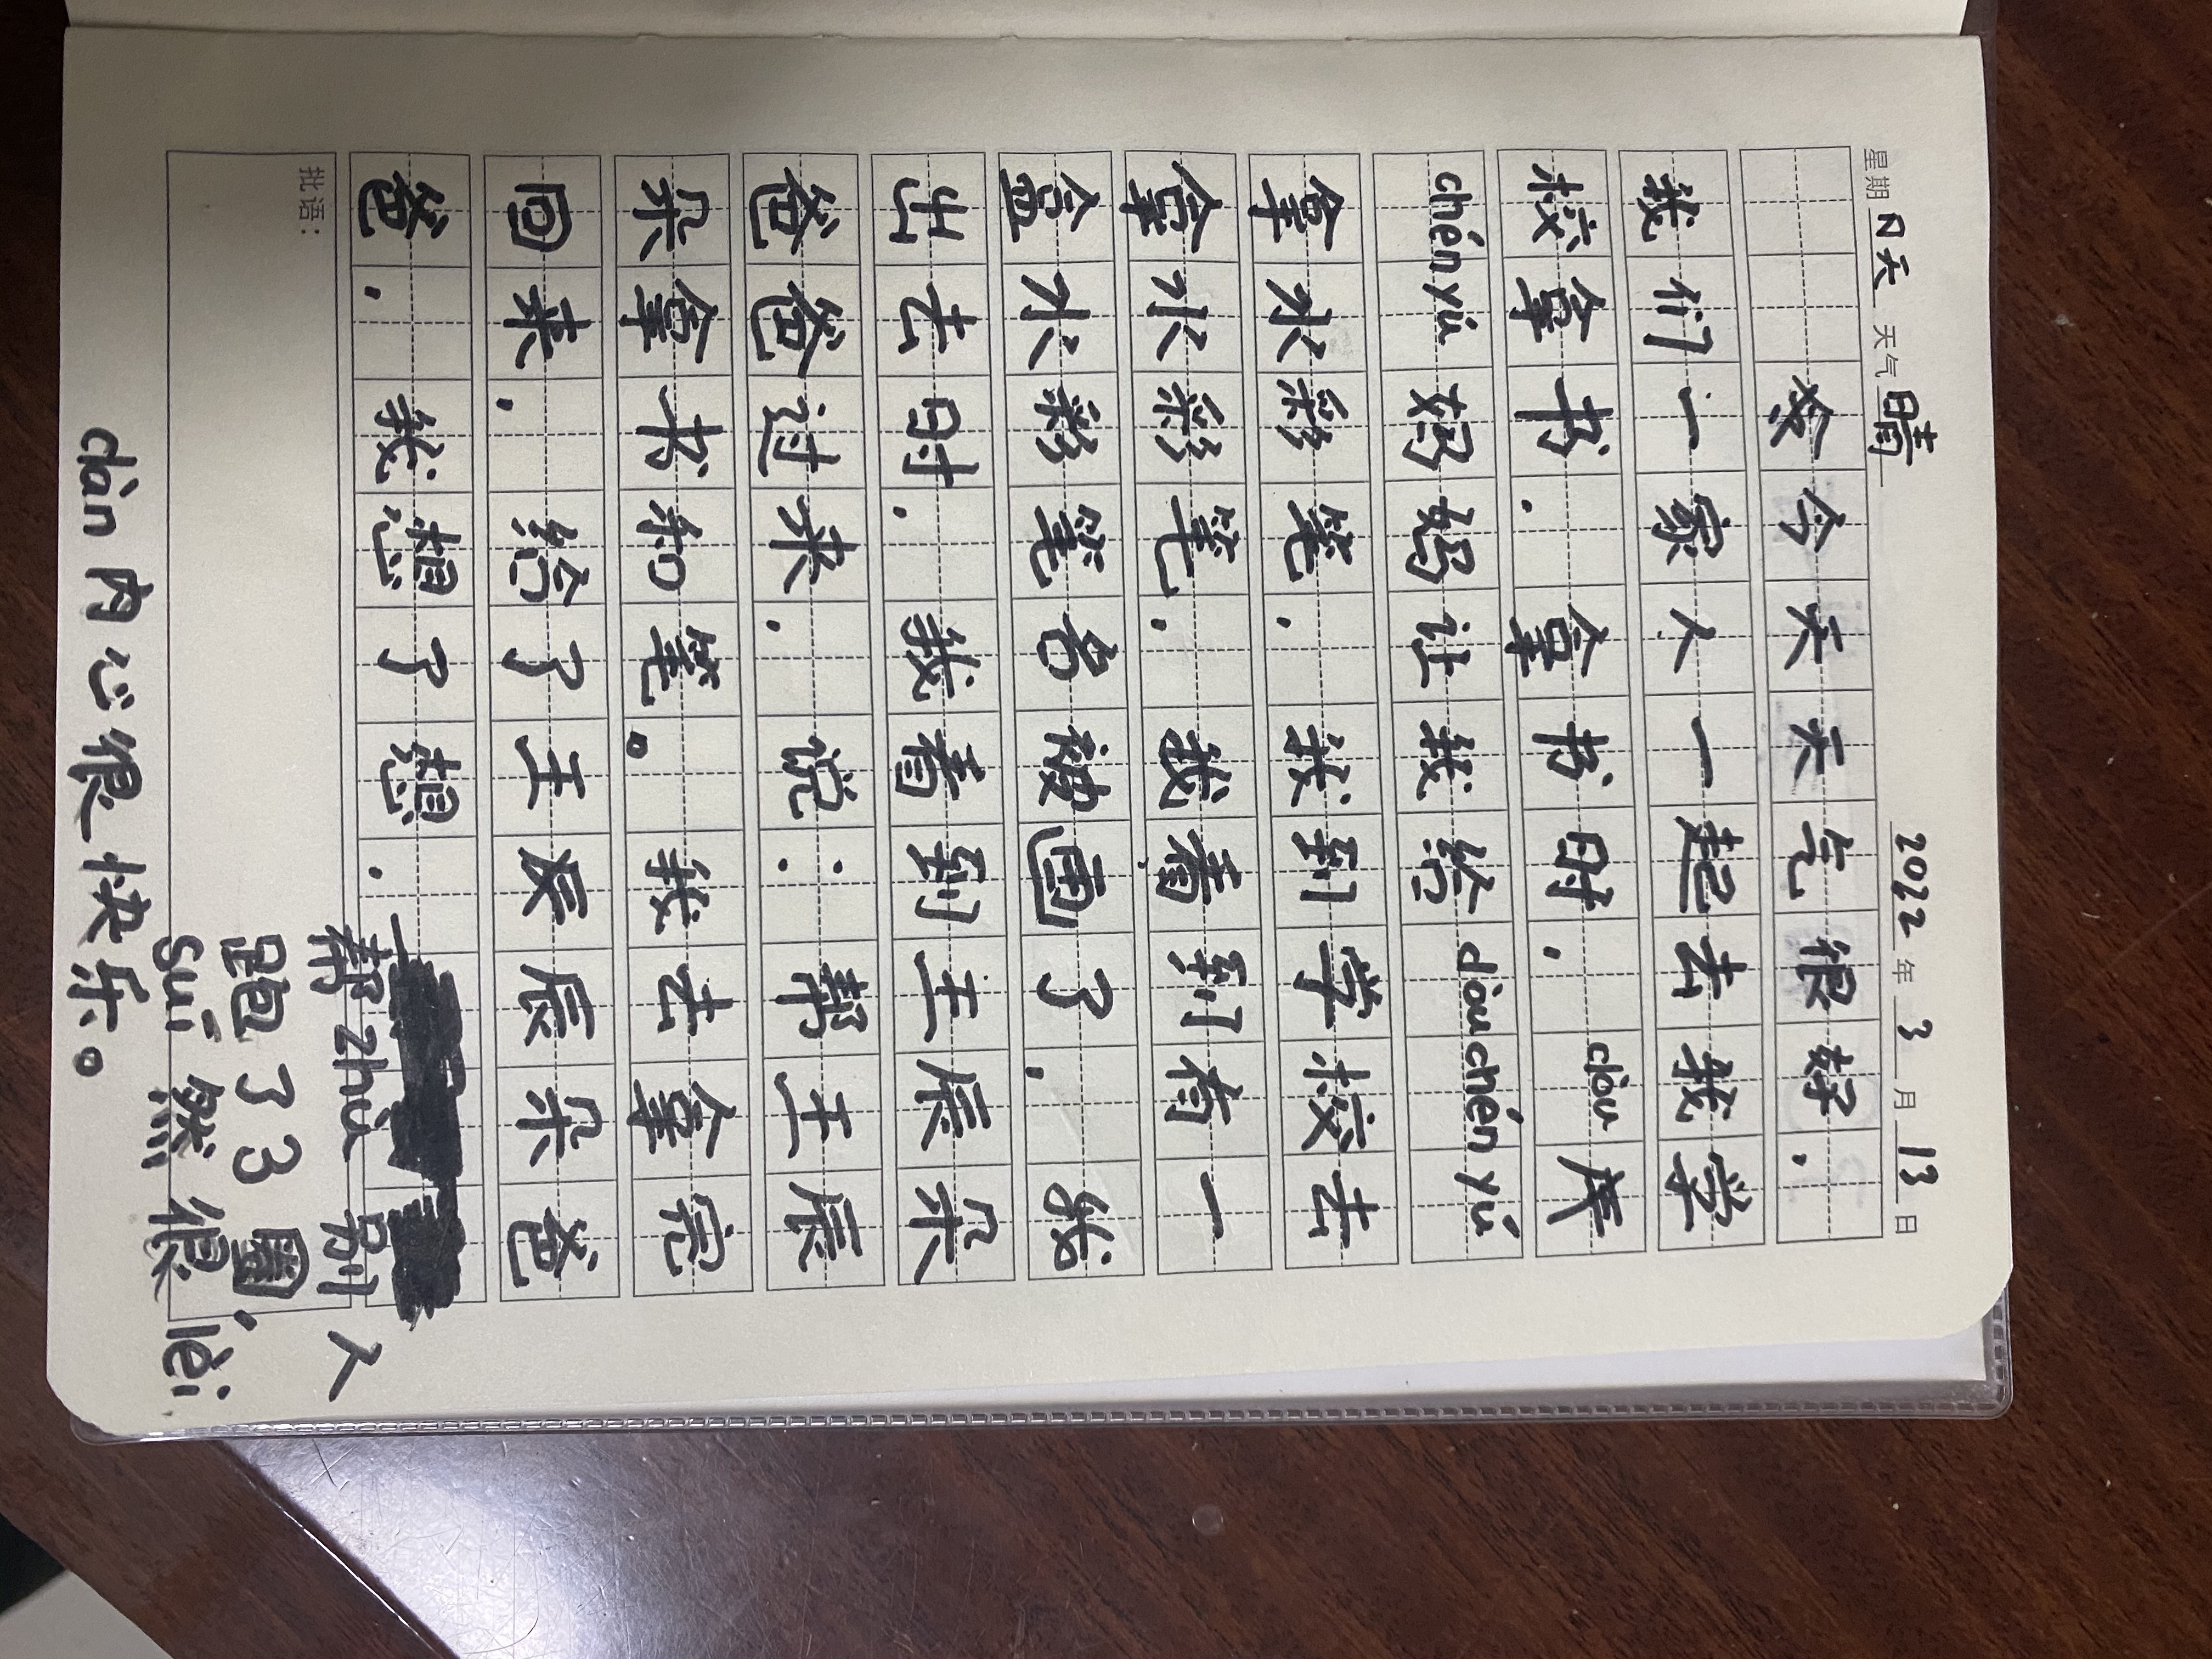 星期 日天 天气 晴 2022 年 3 月 13 日
今天天气很好.
我们一家人一起去我学
校拿书.拿书时.dòu
chén yú 妈妈让我给 dòu chén yú
拿水彩笔.我到学校去
拿水彩笔.我看到有一
盒水彩笔名被画了.
出去时.我看到王辰朵
爸爸过来.说:帮王辰
朵拿书和笔。我去拿完
回来.给了王友辰朵爸
爸.我想了想.
批语:
帮zhù别人
跑了3圈.
suī然很lèi
dàn内心很快乐。